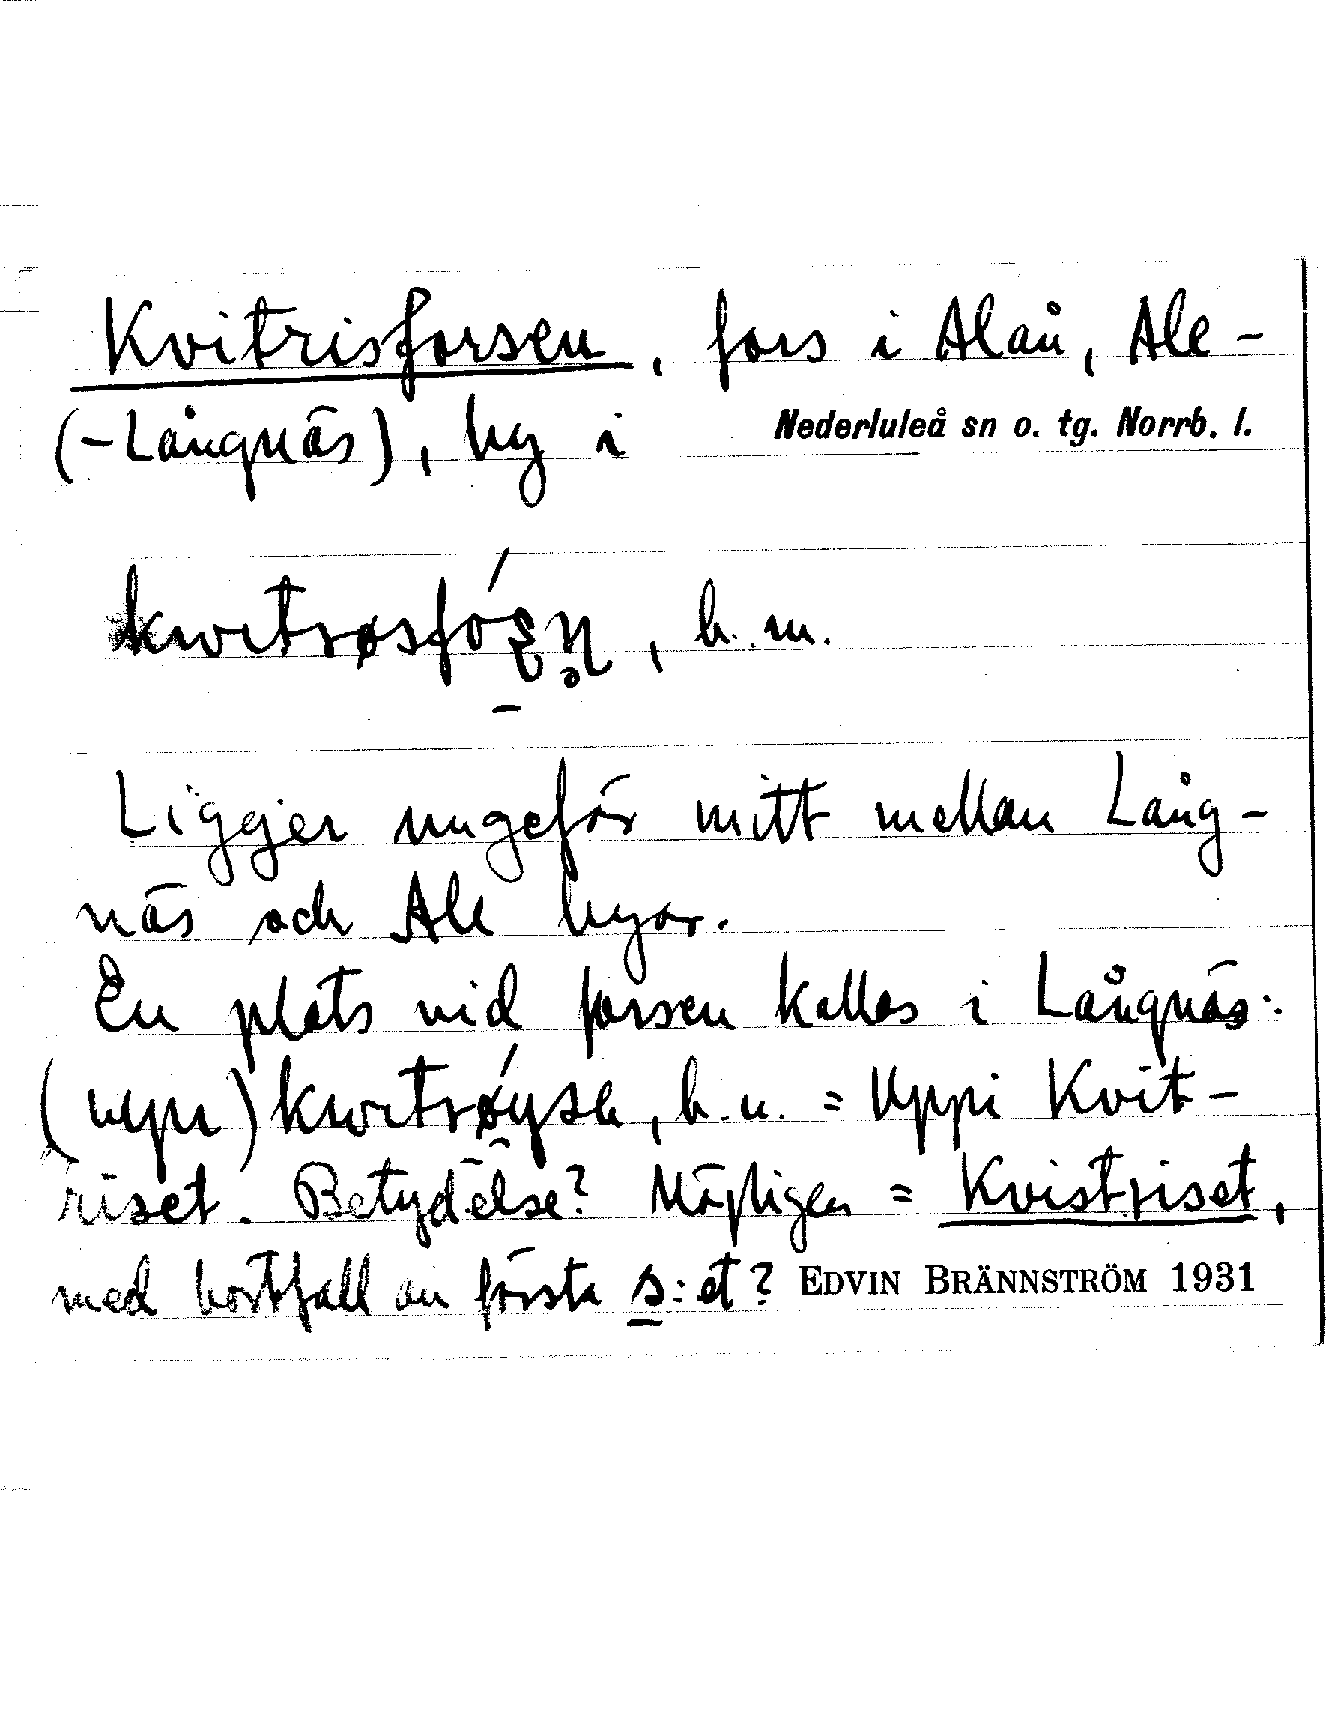 Kvitrisforsen, fors i Alån, Ale-
(-Långnäs), by i Nederluleå sn o. tg. Norrb. l.
, b. m.
Ligger ungefär mitt mellan Lång-
näs och Ale byar.
En plats vid forsen kallas i Långnäs:
b. n. = Uppi Kvit-
riset. Betydelse? Möjligen = Kvistriset,
med bortfall av första s:et? EDVIN BRÄNNSTRÖM 1931